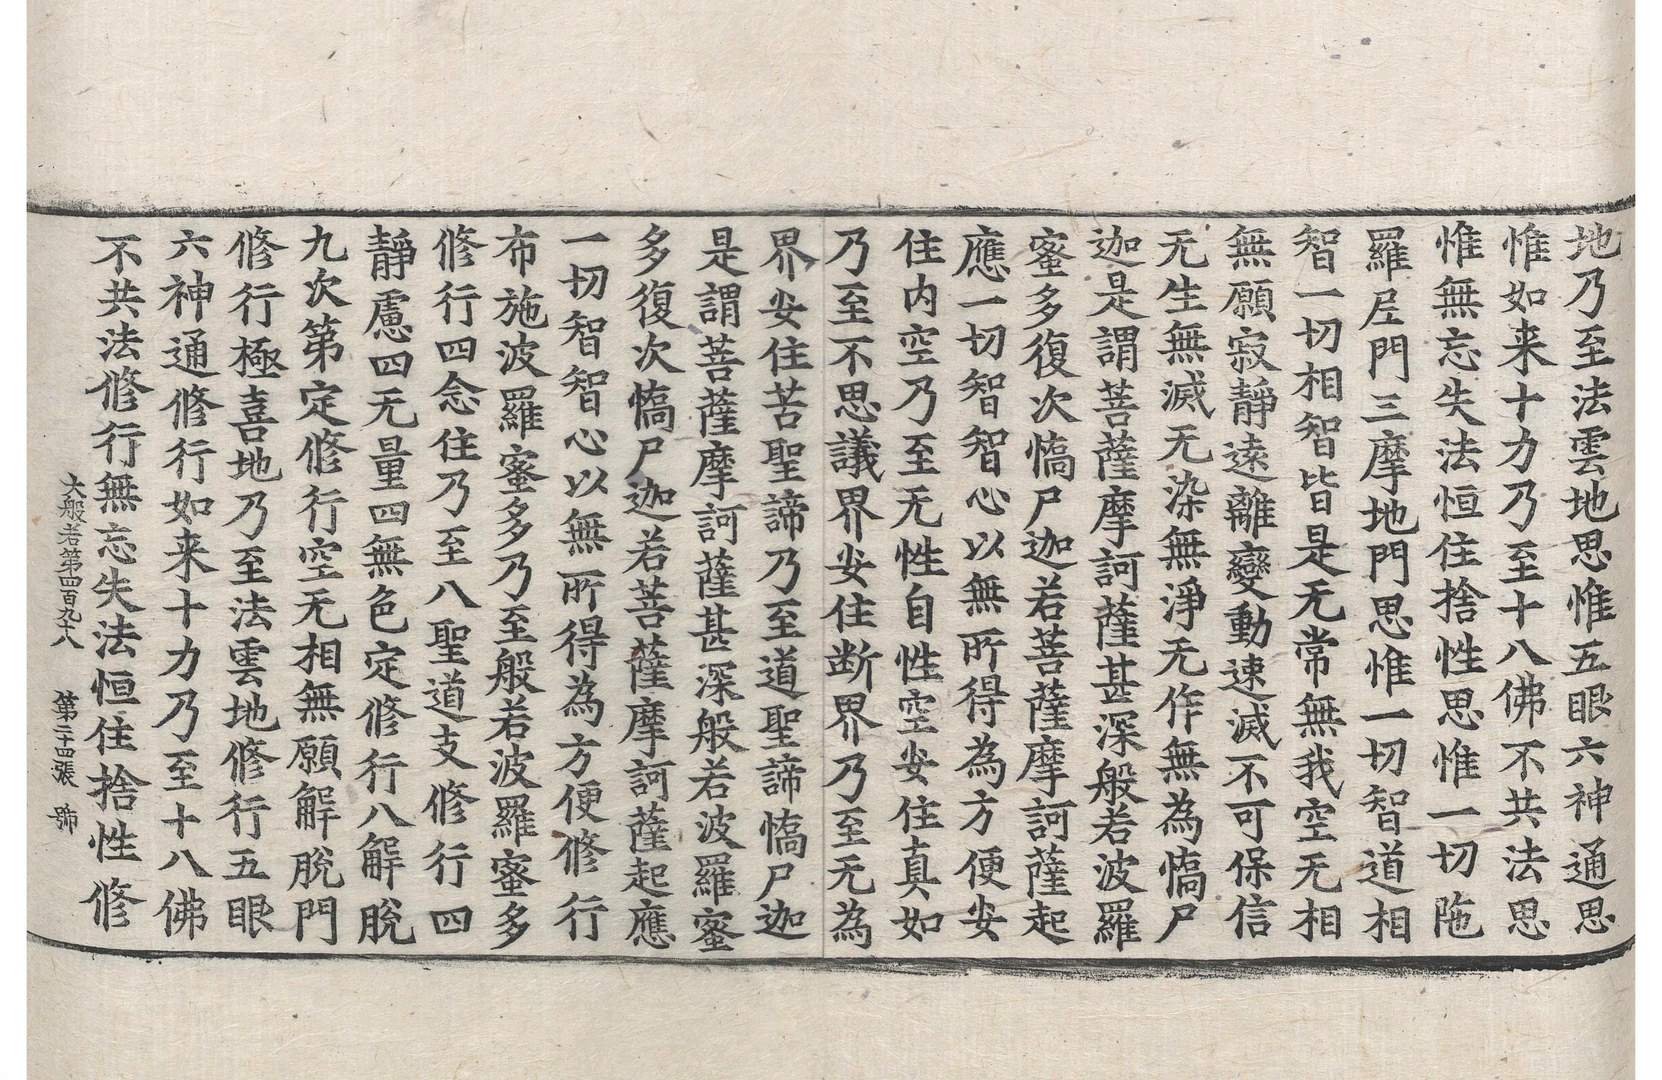 地乃至法雲地思惟五眼六神通思
惟如来十力乃至十八佛不共法思
惟無忘失法恒住捨性思惟一切陁
羅尼門三摩地門思惟一切智道相
智一切相智皆是无常無我空无相
無願寂静遠離變動速滅不可保信
无生無滅无染無淨无作無為憍尸
迦是謂菩薩摩訶薩甚深般若波羅
蜜多復次憍尸迦若菩薩摩訶薩起
應一切智智心以無所得為方便安
住内空乃至无性自性空安住真如
乃至不思議界安住断界乃至无為
界安住苦聖諦乃至道聖諦憍尸迦
是謂菩薩摩訶薩甚深般若波羅蜜
多復次憍尸迦若菩薩摩訶薩起應
一切智智心以無所得為方便修行
布施波羅蜜多乃至般若波羅蜜多
修行四念住乃至八聖道支修行四
靜慮四无量四無色定修行八解脫
九次第定修行空无相無願解脫門
修行極喜地乃至法雲地修行五眼
六神通修行如来十力乃至十八佛
不共法修行無忘失法恒住捨性修
大般若第四百九十八 第二十四張 號